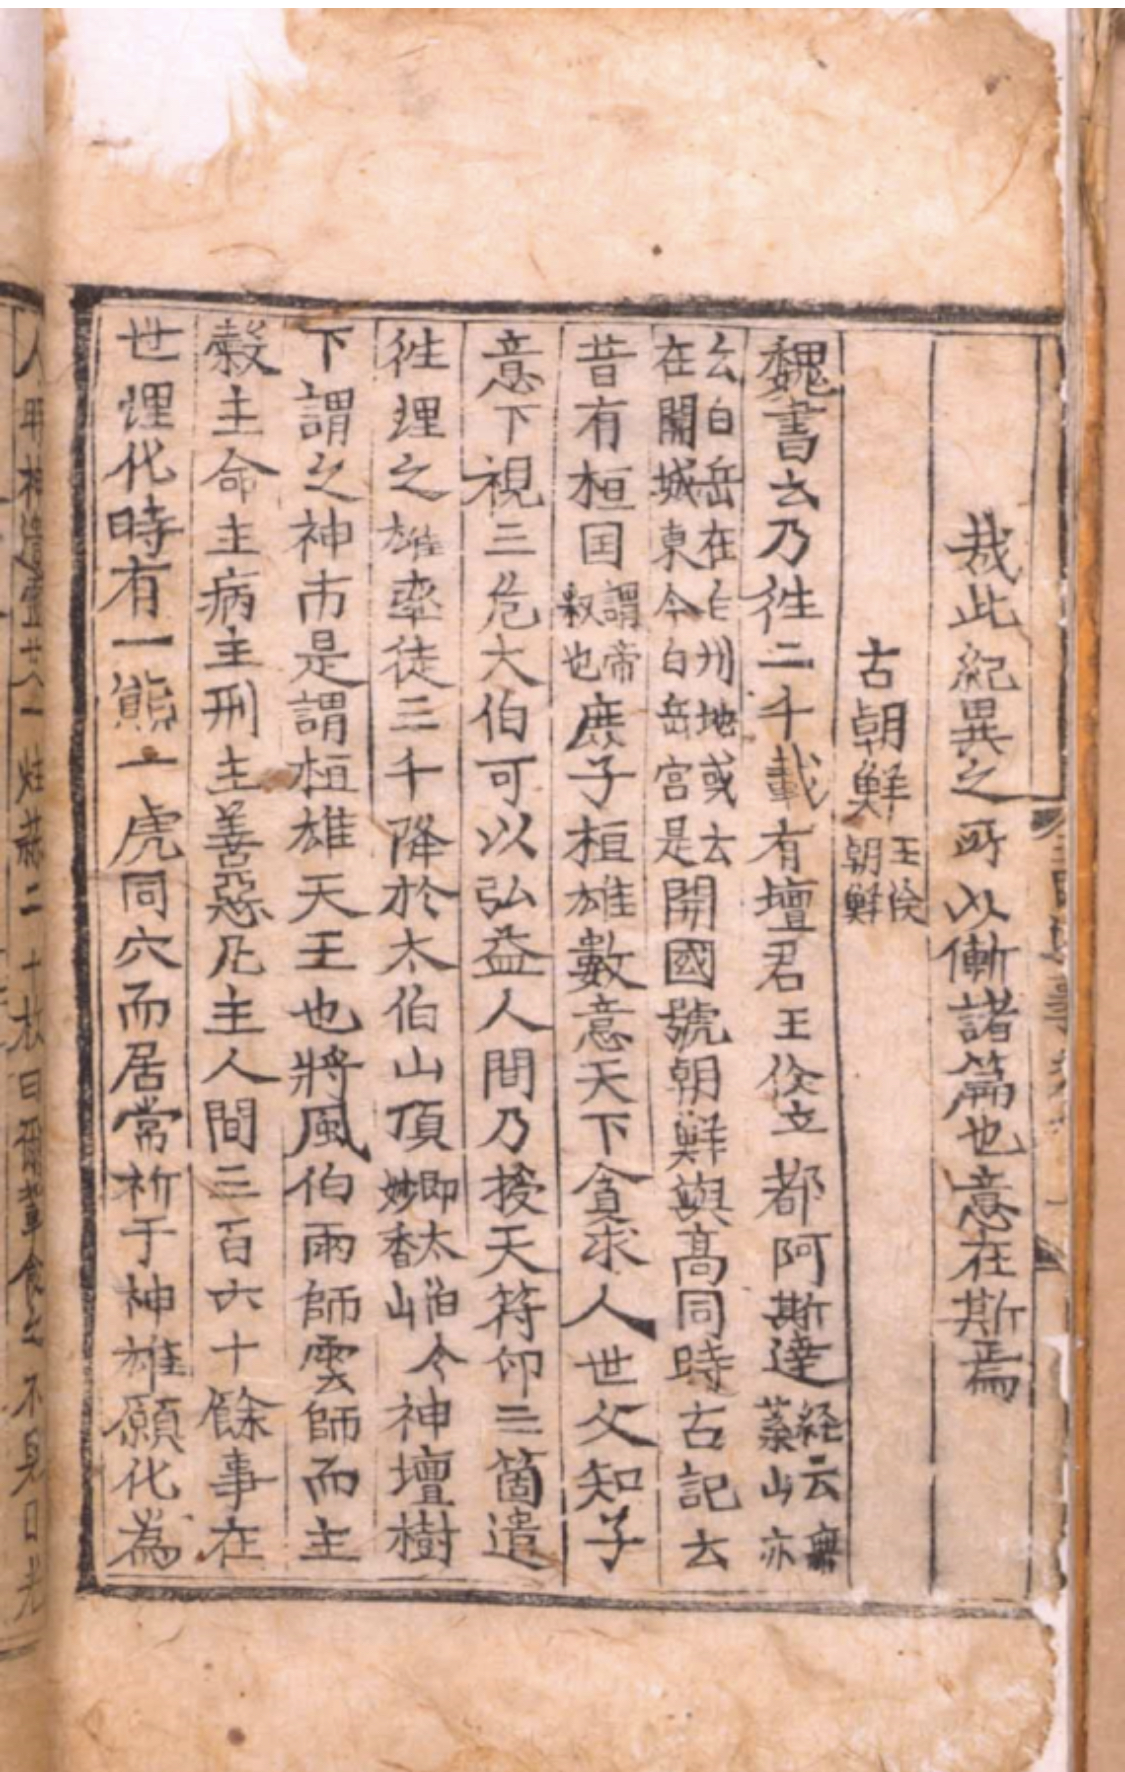 哉此紀異之所以慚諸篇也意在斯焉
古朝鮮 王倹朝鮮
魏書云乃徃二千載有壇君王倹立都阿斯達 経云無葉山亦
云白岳在白州地或云在開城東今白岳宮是 開國號朝鮮與髙同時古記云
昔有桓囯 謂帝釈也 庶子桓雄數意天下貪求人世父知子
意下視三危大伯可以弘益人間乃授天符印三箇遣
徃理之雄率徒三千降於太伯山頂 即太伯今妙香山 神壇樹
下謂之神市是謂桓雄天王也將風伯雨師雲師而主
糓主命主病主刑主善惡凡主人間三百六十餘事在
世理化時有一熊一虎同穴而居常祈于神雄願化為